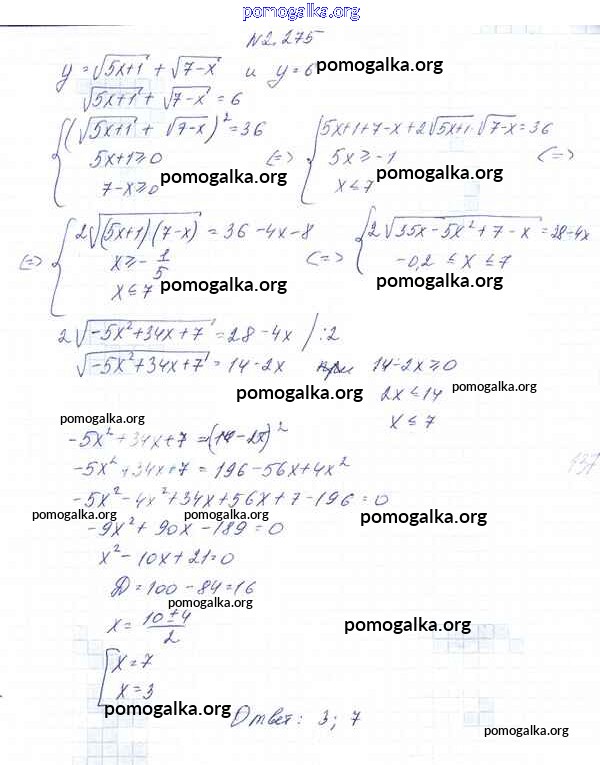 pomogalka.org
N2.275
y = √(5x+1) + √(7-x) и y = 6 pomogalka.org
√(5x+1) + √(7-x) = 6
{ (√(5x+1) + √(7-x))² = 36
5x+1 ≥ 0
7-x ≥ 0 pomogalka.org
(=>
{ 5x+1+7-x+2√(5x+1)·√(7-x) = 36
5x ≥ -1
x ≤ 7 pomogalka.org
(=>
(=> { 2√((5x+1)(7-x)) = 36-4x-8
x ≥ -1/5
x ≤ 7 pomogalka.org
(=>
{ 2√(35x-5x²+7-x) = 28-4x
-0,2 ≤ x ≤ 7
pomogalka.org
2√(-5x²+34x+7) = 28-4x /:2
√(-5x²+34x+7) = 14-2x при 14-2x ≥ 0
pomogalka.org 2x ≤ 14 pomogalka.org
pomogalka.org x ≤ 7
-5x²+34x+7 = (14-2x)²
-5x²+34x+7 = 196-56x+4x²
137
-5x²-4x²+34x+56x+7-196=0
pomogalka.org pomogalka.org pomogalka.org
-9x²+90x-189=0
x²-10x+21=0
D=100-84=16
pomogalka.org
x = (10±4)/2 pomogalka.org
[ x=7
x=3
pomogalka.org Ответ: 3; 7
pomogalka.org